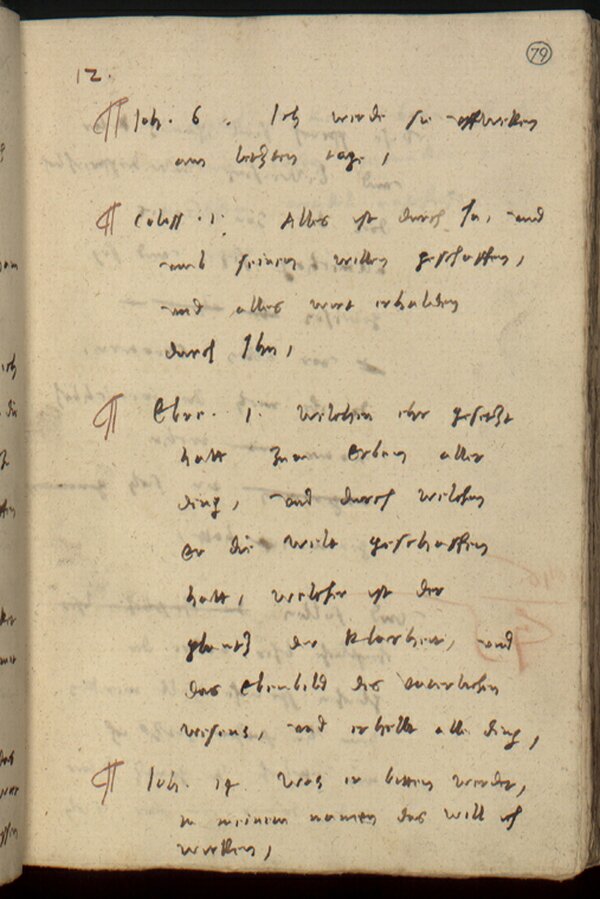 79
12.
¶ Joh. 6. Ich werde sie aufwecken
am letzten tage,
¶ Coloss. 1. Alles ist durch In, und
umb seinen willen geschaffen,
und alles wirt erhalden
durch Ihn,
¶ Ebre. 1. welchen ehr gesetzt
hatt zum Erben aller
ding, und durch welchen
er die welt geschaffen
hatt, welcher ist der
glantz der Klarheit, und
das Ebenbild des
wesens, und erhellt alle ding,
¶ Joh. 14 Was ir bitten werdet,
in meinem namen das will ich